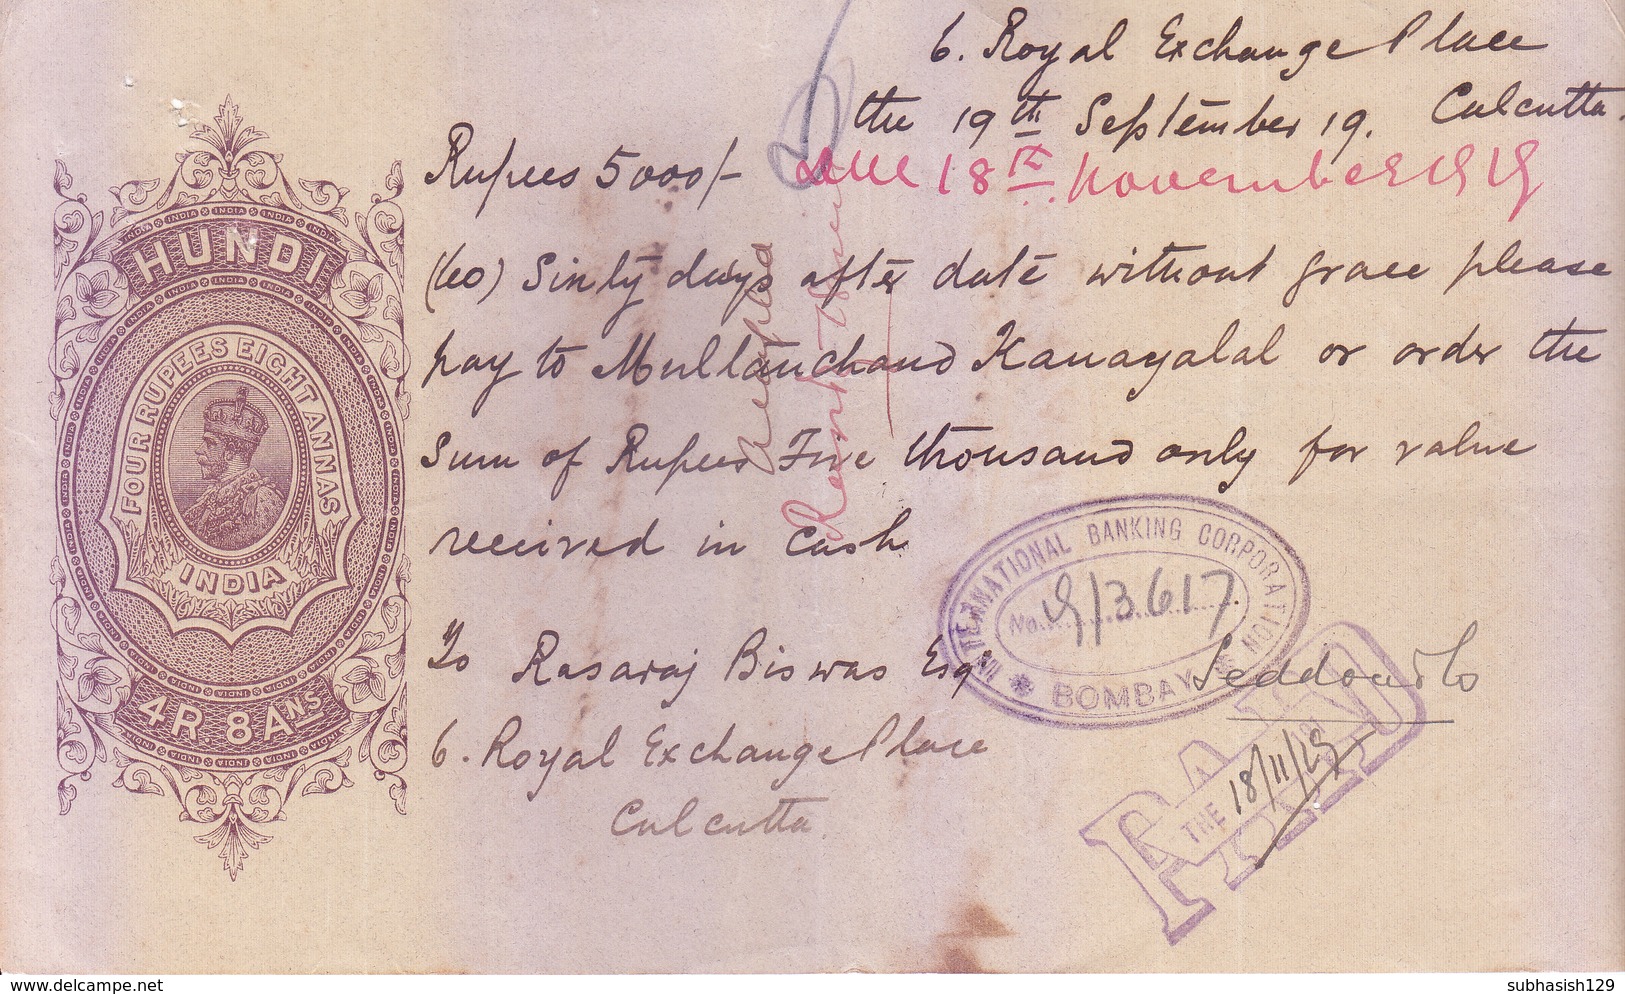 6. Royal Exchange Place
Calcutta.
the 19th September 19.
Rupees 5000/-
due 18th November 1919
(60) Sixty days after date without grace please
pay to Mullanchand Kanayalal or order the
Sum of Rupees Five thousand only for value
received in Cash
To Rasaraj Biswas Esqr
6. Royal Exchange Place
Calcutta.
HUNDI
FOUR RUPEES EIGHT ANNAS
INDIA
4R. 8ANS
INTERNATIONAL BANKING CORPORATION
No. 9/3617
BOMBAY
PAID
THE 18/11/19
www.delcampe.net
subhasish129